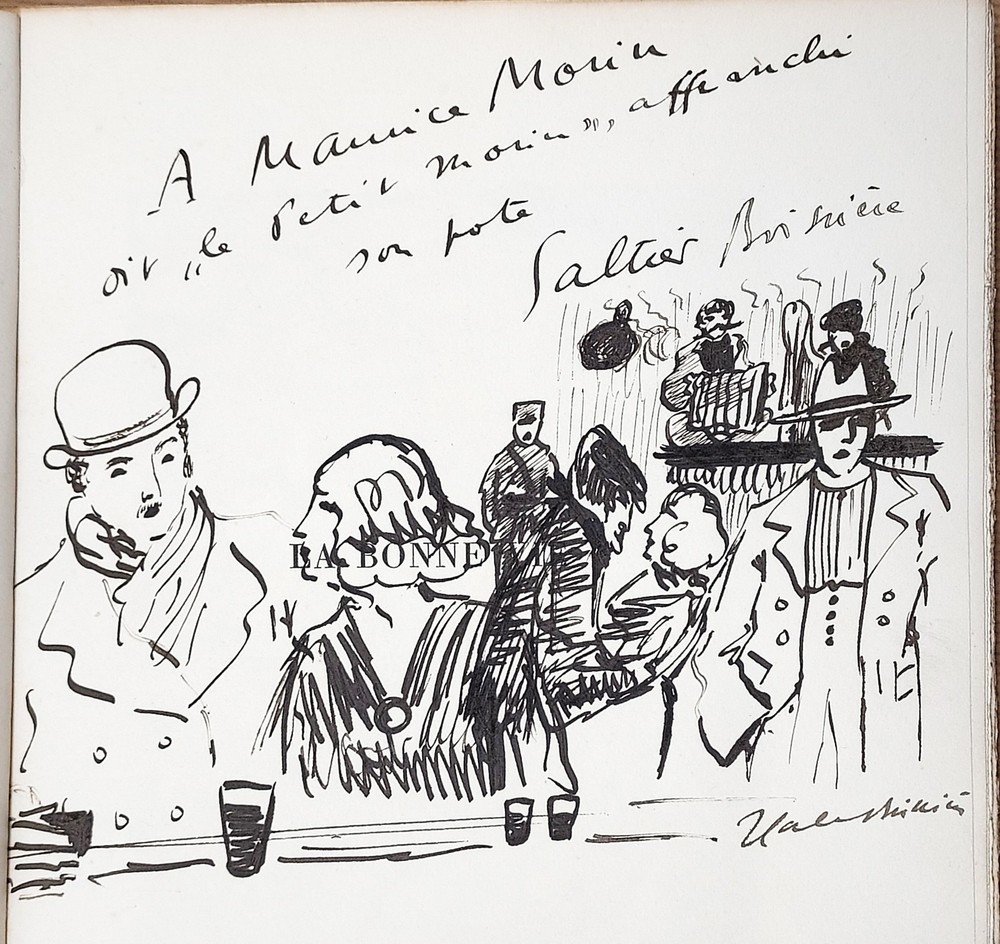 A Maurice Morin
dit „le Petit Morin”, affranchi
son pote
Galtier Boissière
LA BONNE VIE